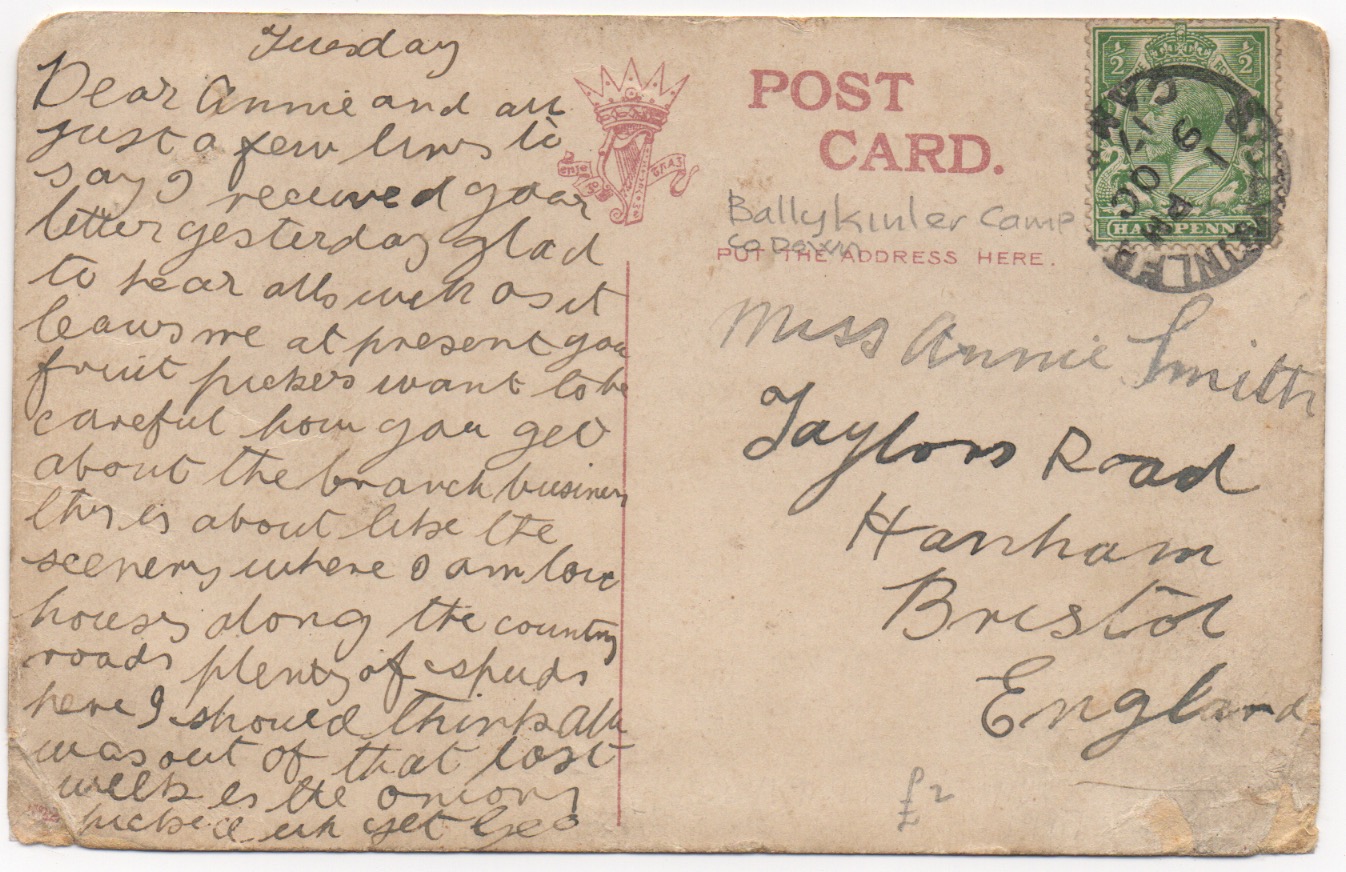 Tuesday
Dear Annie and all
just a few lines to
say I received your
letter yesterday glad
to hear alls well as it
leaves me at present you
fruit pickers want to be
careful how you get
about the branch business
this is about like the
scenery where I am low
houses along the country
roads plenty of spuds
here I should think Alb
was out of that last
week is the onions
picked up yet Geo
POST
CARD.
Ballykinler Camp
Co Down
PUT THE ADDRESS HERE.
Miss Annie Smith
Taylors Road
Hanham
Bristol
England
£2
½ ½
HALFPENNY